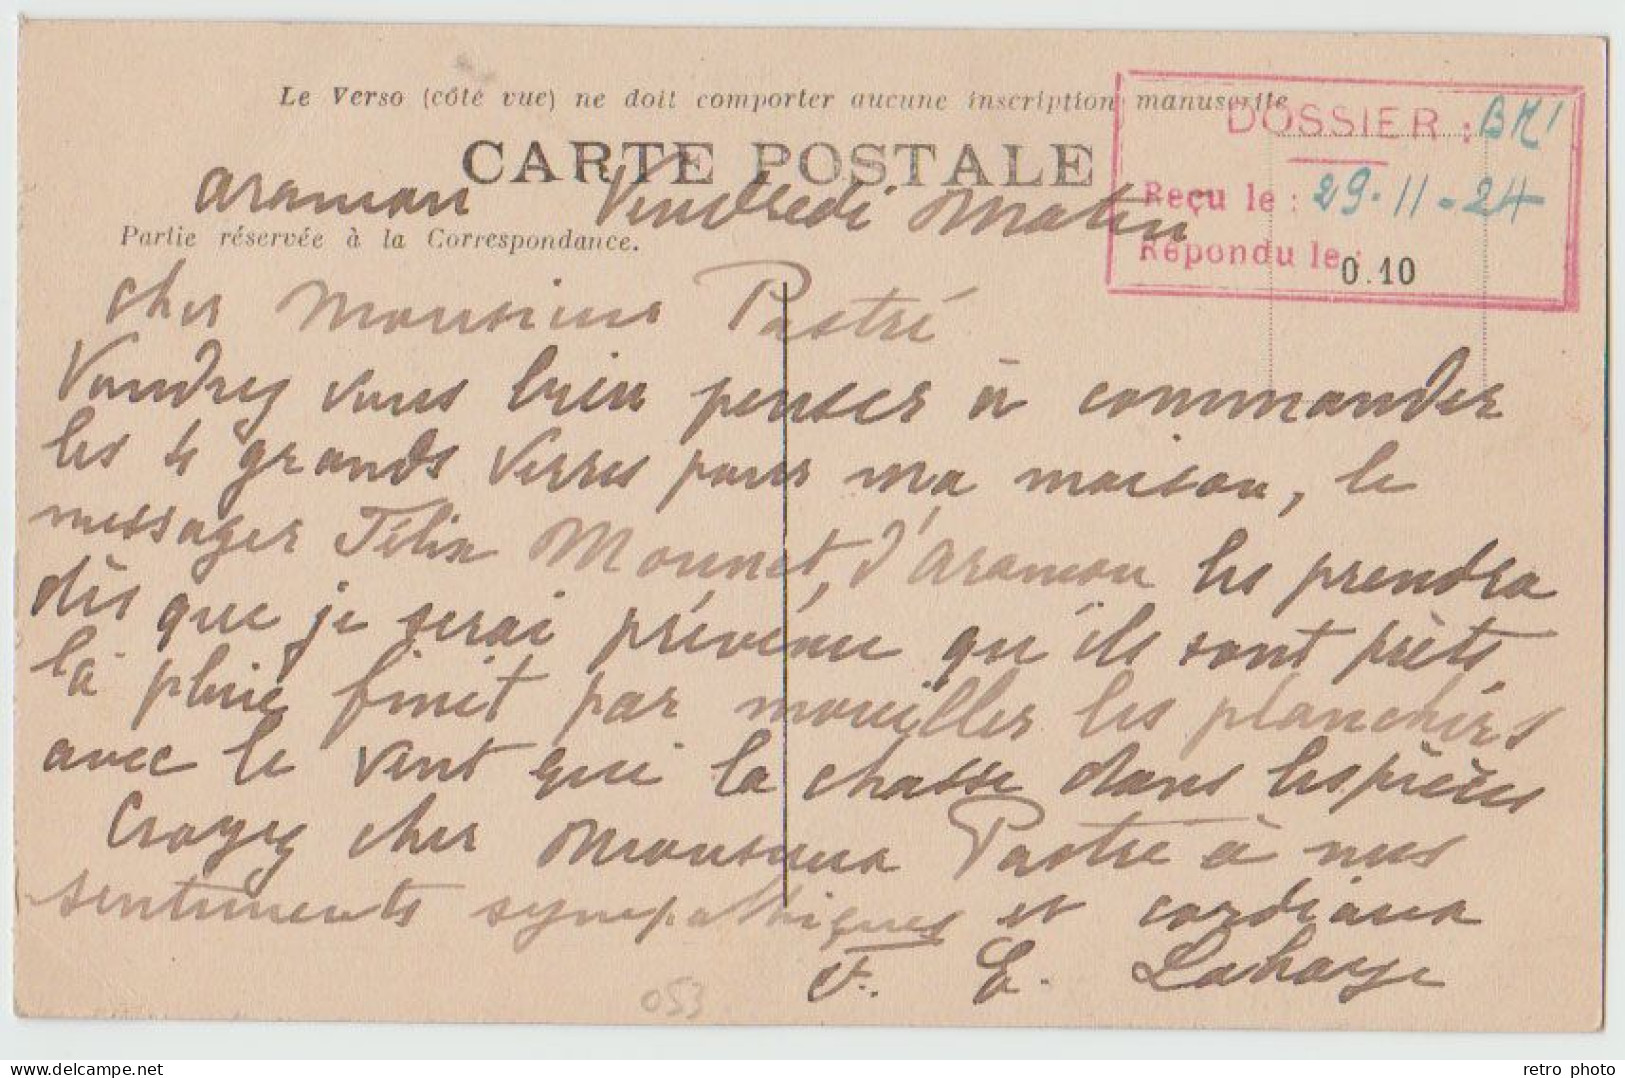 Le Verso (côté vue) ne doit comporter aucune inscription manuscrite
CARTE POSTALE
DOSSIER : BM
Reçu le : 29-11-24
Répondu le :
0.10
Aramon Vendredi Matin
Partie réservée à la Correspondance.
Cher Monsieur Pastré
Voudrez vous bien penser à commander
les 4 grands verres pour ma maison, le
messager Félix Mounet, d'Aramon les prendra
dès que je serai prévenue qu'ils sont prêts,
la pluie finit par mouiller les planchers
avec le vent qui la chasse dans les pièces
Croyez cher Monsieur Pastré à nos
sentiments sympathiques et cordiaux
E. Lahaye
053
retro photo